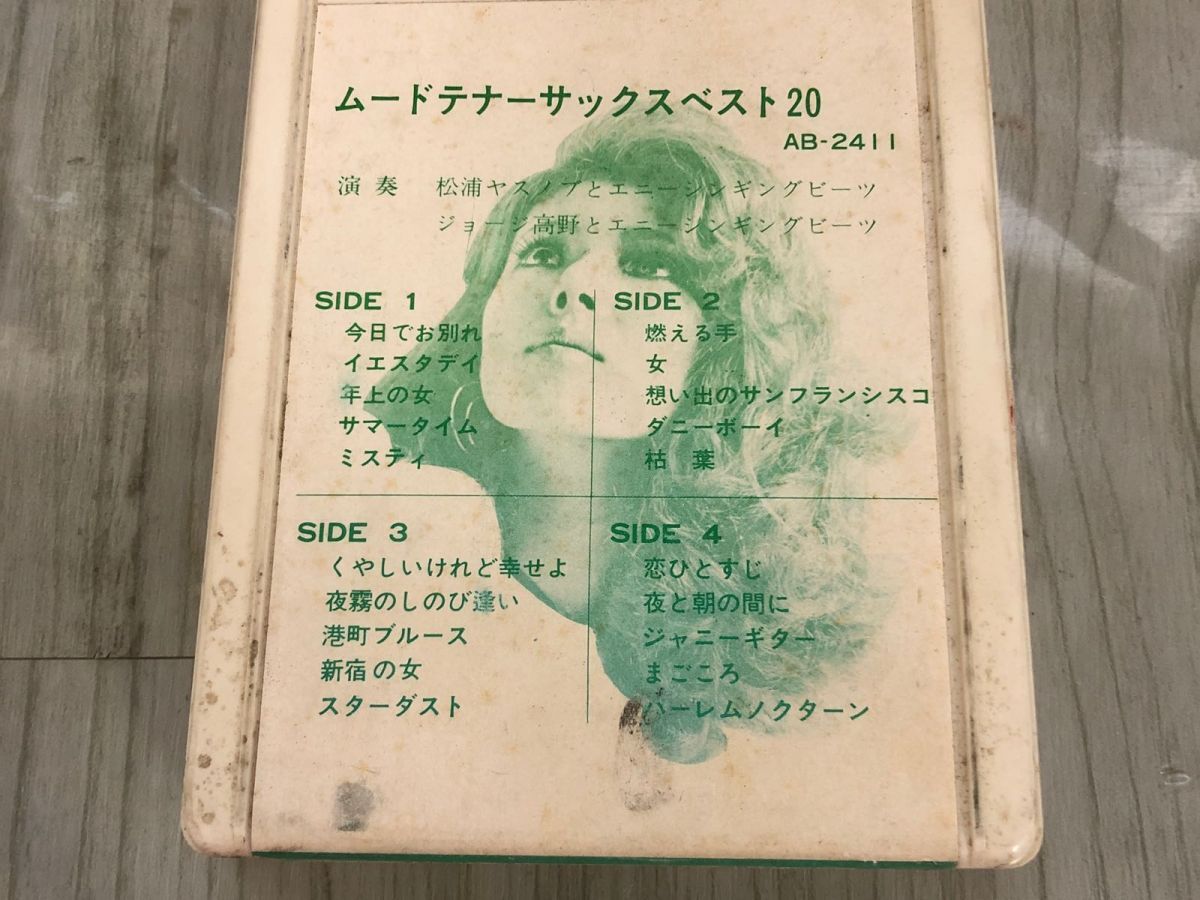 ムードテナーサックスベスト20
AB-2411
演奏 松浦ヤスノブとエニーシンギングビーツ
ジョージ高野とエニーシンギングビーツ
SIDE 1
今日でお別れ
イエスタデイ
年上の女
サマータイム
ミスティ
SIDE 2
燃える手
女
想い出のサンフランシスコ
ダニーボーイ
枯葉
SIDE 3
くやしいけれど幸せよ
夜霧のしのび逢い
港町ブルース
新宿の女
スターダスト
SIDE 4
恋ひとすじ
夜と朝の間に
ジャニーギター
まごころ
ハーレムノクターン